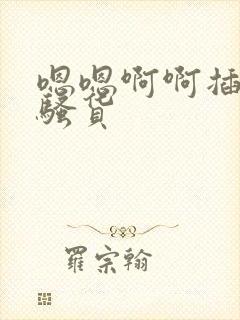 嗯嗯啊啊插
骚花
貝
羅宗翰